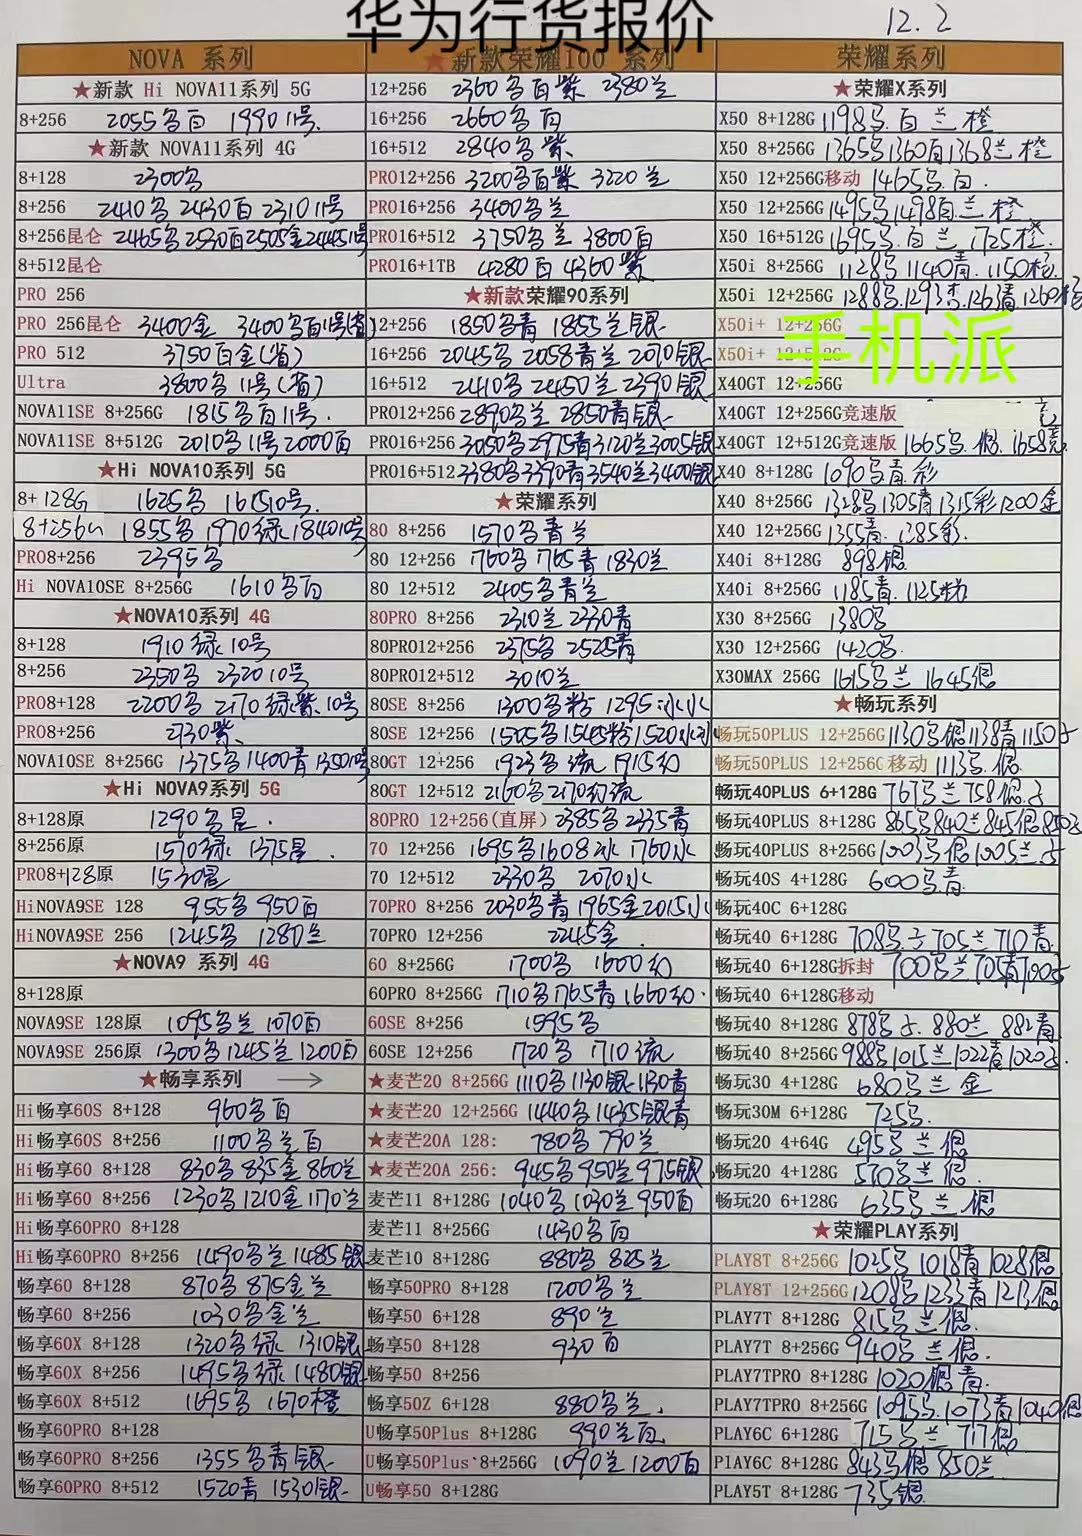 华为行货报价
12.2
NOVA 系列
★新款 Hi NOVA11系列 5G
8+256 2055多白 1990 11号.
★新款 NOVA11系列 4G
8+128 2300多
8+256 2410多 2430百 2310 11号
8+256昆仑 2465多2530百2505金2445 11号
8+512昆仑
PRO 256
PRO 256昆仑 3400金 3400多百11号(省)
PRO 512 3750百金(省)
Ultra 3800多 11号(省)
NOVA11SE 8+256G 1815多百11号.
NOVA11SE 8+512G 2010多11号2000百
★Hi NOVA10系列 5G
8+128G 1625多 1615 10号.
8+256G 1855多 1970绿 1840 10号
PRO8+256 2395多
Hi NOVA10SE 8+256G 1610多百
★NOVA10系列 4G
8+128 1910绿 10号
8+256 2350多 2320 10号
PRO8+128 2200多 2170绿紫.10号
PRO8+256 2730紫.
NOVA10SE 8+256G 1375多1400青1350 10号
★Hi NOVA9系列 5G
8+128原 1290多星.
8+256原 1570绿 1375星.
PRO8+128原 1530星
HiNOVA9SE 128 955多 950百
HiNOVA9SE 256 1245多 1280兰
★NOVA9 系列 4G
8+128原
NOVA9SE 128原 1095多兰 1070百
NOVA9SE 256原 1300多1245兰1200百
★畅享系列 →
Hi畅享60S 8+128 960多百
Hi畅享60S 8+256 1100多兰百
Hi畅享60 8+128 830多 835金 860兰
Hi畅享60 8+256 1230多1210金1170兰
Hi畅享60PRO 8+128
Hi畅享60PRO 8+256 1490多兰1485银
畅享60 8+128 870多 875金兰
畅享60 8+256 1030多金兰
畅享60X 8+128 1320多绿 1310银
畅享60X 8+256 1495多绿 1480银
畅享60X 8+512 1695多 1670橙
畅享60PRO 8+128
畅享60PRO 8+256 1355多青银.
畅享60PRO 8+512 1520青 1530银
★新款荣耀100 系列
12+256 2360多百紫 2380兰
16+256 2660多百
16+512 2840多紫
PRO12+256 3200多百紫 3220兰
PRO16+256 3400多兰
PRO16+512 3750多兰 3800百
PRO16+1TB 4280百 4360紫
★新款荣耀90系列
12+256 1850多青 1855兰银
16+256 2045多 2058青兰 2070银
16+512 2410多 2450兰 2390银
PRO12+256 2890多兰 2850青银
PRO16+256 3050多2975青3120兰3005银
PRO16+512 3380多3390青3540兰3400银
★荣耀系列
80 8+256 1570多青兰
80 12+256 1760多 1765青 1830兰
80 12+512 2405多青兰
80PRO 8+256 2310兰 2330青
80PRO12+256 2375多 2525青
80PRO12+512 3010兰
80SE 8+256 1300多粉 1295冰水
80SE 12+256 1505多
80GT 12+256 1923多流 1915幻
80GT 12+512 2160多2170幻流
80PRO 12+256(直屏) 2385多 2335青
70 12+256 1695多1608冰 1760水
70 12+512 2330多 2070水
70PRO 8+256 2030多青 1965金2015水
70PRO 12+256 2245金.
60 8+256G 1700多 1600幻
60PRO 8+256G 1710多1765青 1660幻.
60SE 8+256 1595多
60SE 12+256 1720多 1710流
★麦芒20 8+256G 1110多1130银1130青
★麦芒20 12+256G 1440多1435银青
★麦芒20A 128: 780多 790兰
★麦芒20A 256: 945多950兰975银
麦芒11 8+128G 1040多1030兰950百
麦芒11 8+256G 1430多百
麦芒10 8+128G 880多 825兰
畅享50PRO 8+128 1200多兰
畅享50 6+128 890兰
畅享50 8+128 930百
畅享50 8+256
畅享50Z 6+128 880多兰.
U畅享50Plus 8+128G 990兰百.
U畅享50Plus 8+256G 1090兰 1200百
U畅享50 8+128G
荣耀系列
★荣耀X系列
X50 8+128G 1198多.百兰橙
X50 8+256G 1365多1360百1368兰橙
X50 12+256G移动 1465多.百.
X50 12+256G 1495多1498百兰橙
X50 16+512G 1695多.百兰 1725橙.
X50i 8+256G 1128多1140青.1150橙.
X50i 12+256G 1288多.1293杏.1263青1260橙
X50i+ 12+256G
X50i+ 12+512G
手机派
X40GT 12+256G
X40GT 12+256G竞速版
X40GT 12+512G竞速版 1665多.银.1658竞
X40 8+128G 1090多青.彩
X40 8+256G 1328多1305青1315彩1200金
X40 12+256G 1355青.1385彩.
X40i 8+128G 898银
X40i 8+256G 1185青.1125粉
X30 8+256G 1380多
X30 12+256G 1420多.
X30MAX 256G 1615多兰 1645银
★畅玩系列
畅玩50PLUS 12+256G 1130多银1138青1150
畅玩50PLUS 12+256G移动 1113多.银.
畅玩40PLUS 6+128G 767多兰758银.
畅玩40PLUS 8+128G 865多840兰845银850
畅玩40PLUS 8+256G 1003多银1005兰
畅玩40S 4+128G 600多.青.
畅玩40C 6+128G
畅玩40 6+128G 708多. 705兰 710青.
畅玩40 6+128G拆封 700多兰705青700
畅玩40 6+128G移动
畅玩40 8+128G 878多. 880兰 882青.
畅玩40 8+256G 988多1015兰1022青1020
畅玩30 4+128G 680多兰 金
畅玩30M 6+128G 725多.
畅玩20 4+64G 495多兰银.
畅玩20 4+128G 570多兰银.
畅玩20 6+128G 635多兰 银
★荣耀PLAY系列
PLAY8T 8+256G 1025多 1018青 1028银
PLAY8T 12+256G 1208多1233青1213银
PLAY7T 8+128G 815多兰银.
PLAY7T 8+256G 940多兰银.
PLAY7TPRO 8+128G 1020银青.
PLAY7TPRO 8+256G 1095多.1073青1040银
PLAY6C 6+128G 715多兰 717银
PlAY6C 8+128G 843多银850兰
PLAY5T 8+128G 735银